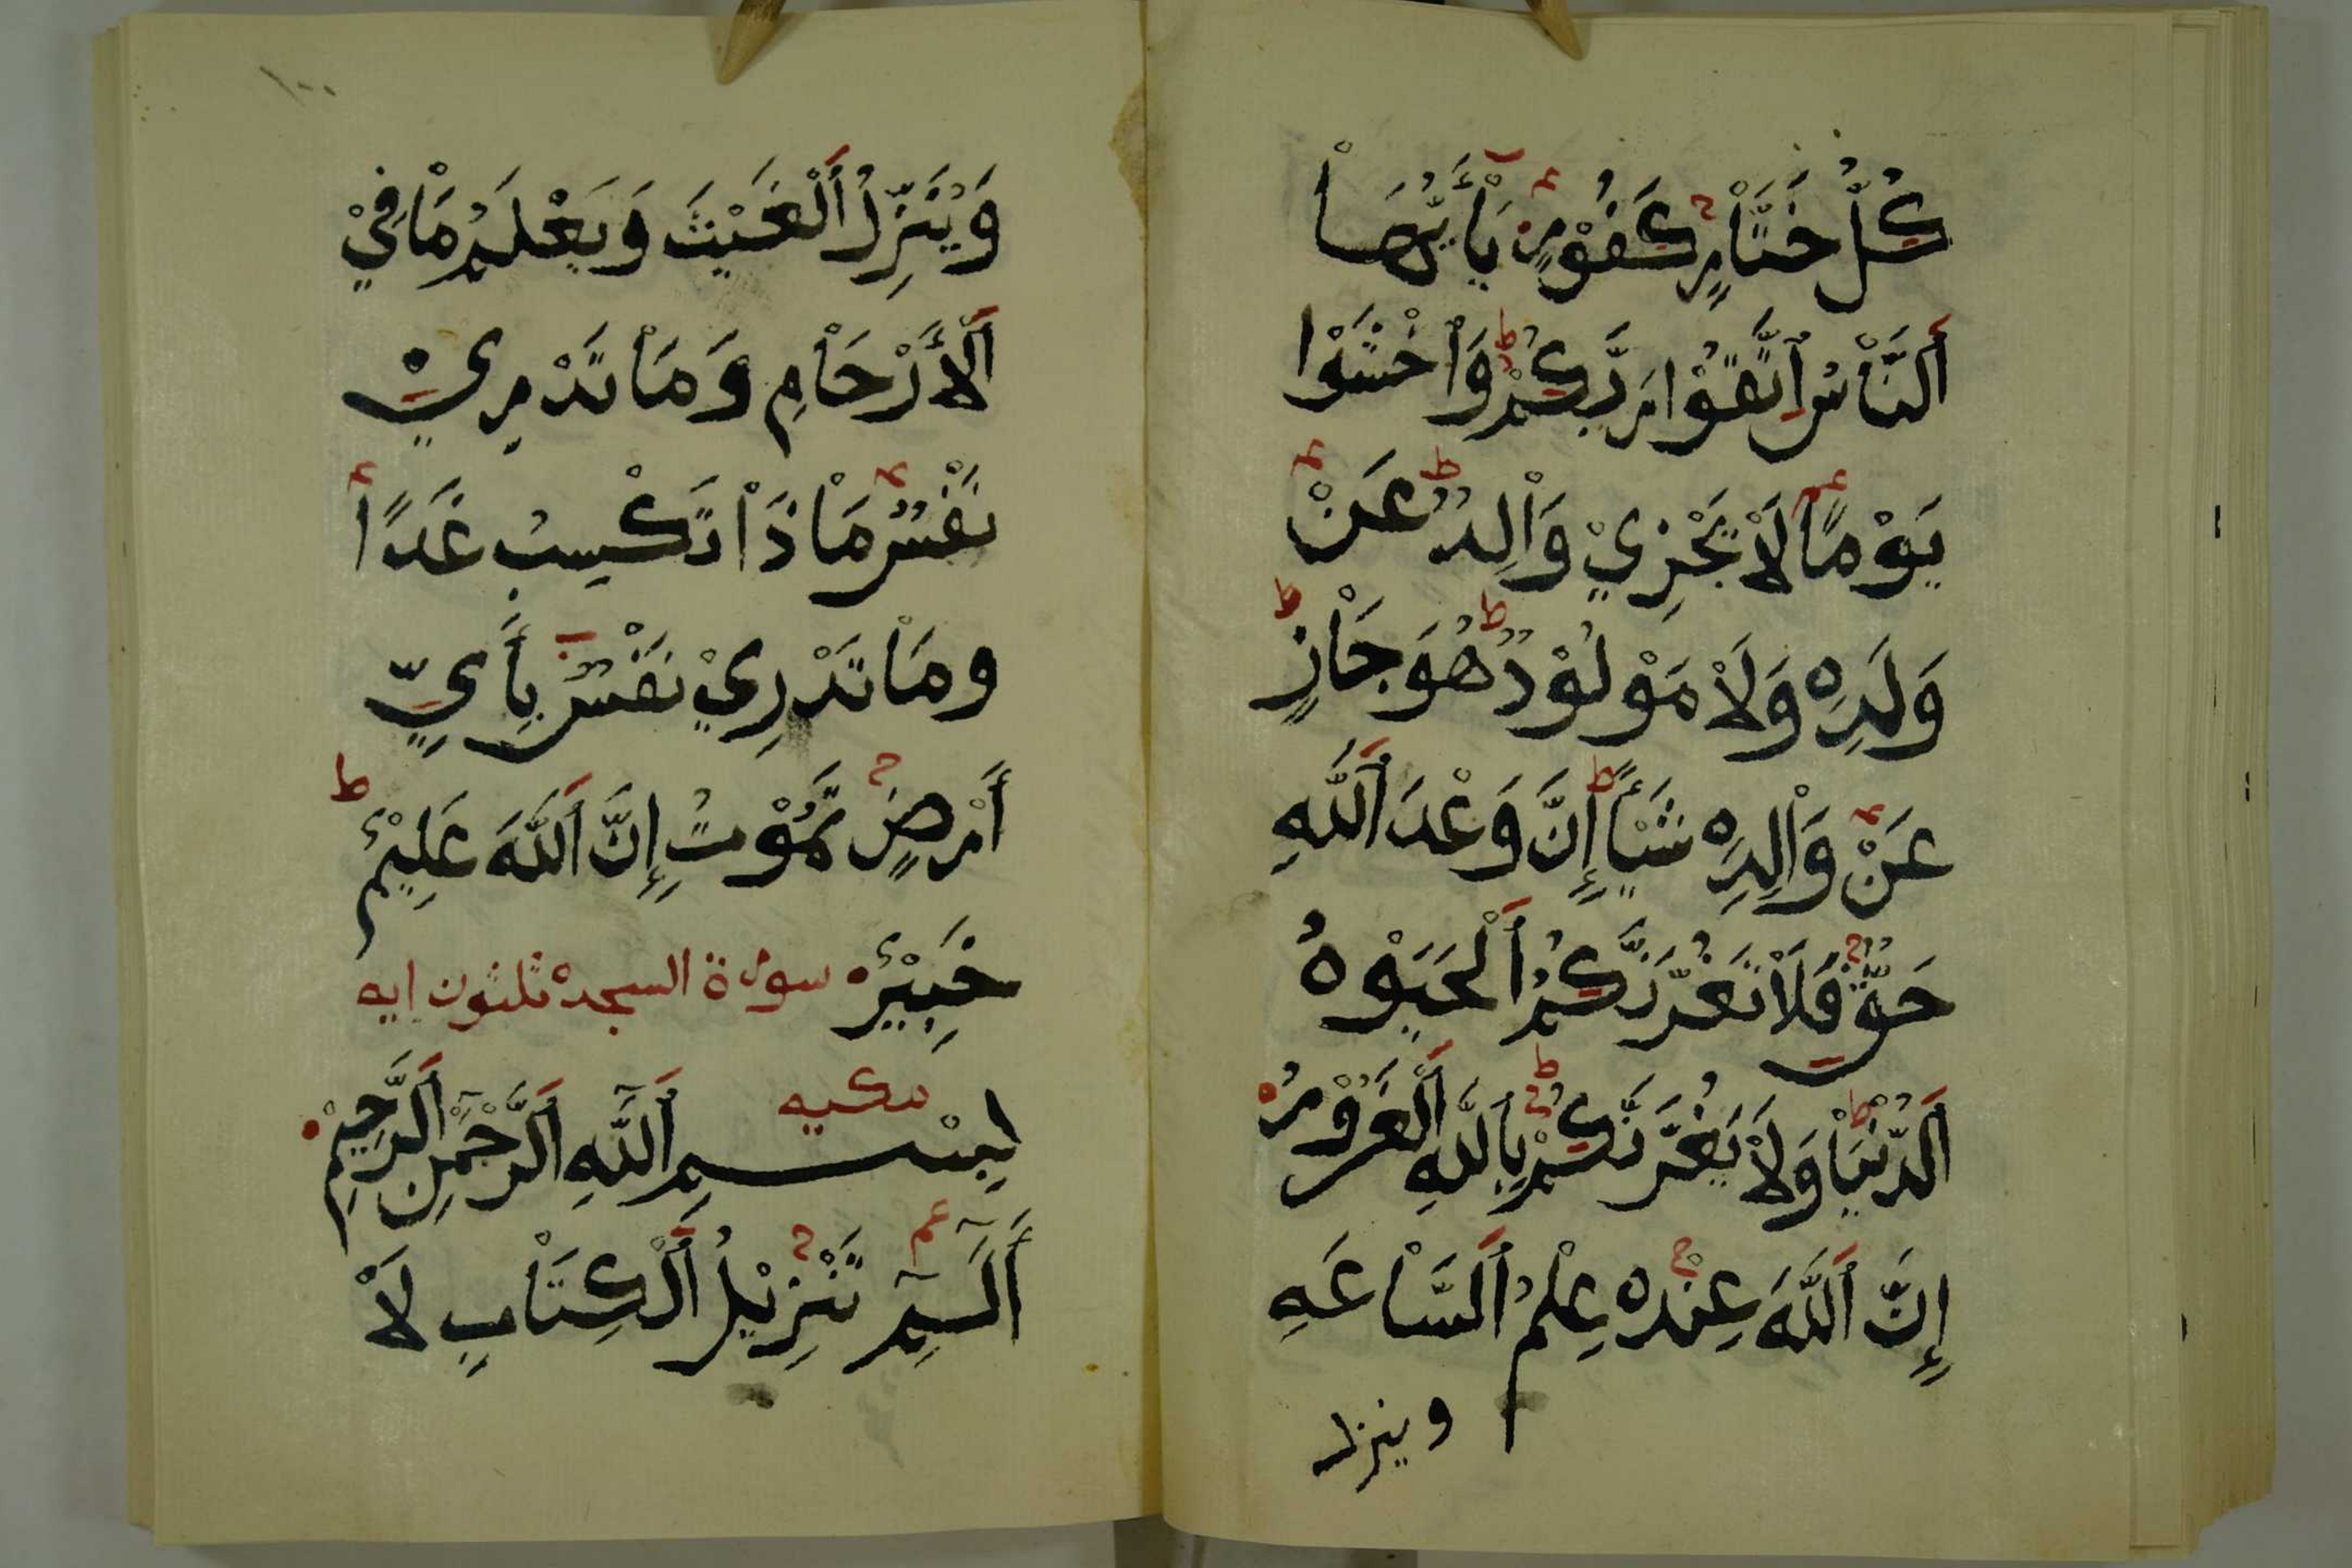 كُلُّ خَتَّاْرٍ كَفُوْرٍ يَاْأَيُّهَاْ
اَلنَّاْسُ اِتَّقُوْا رَبَّكُمْ وَاْخْشَوْا
يَوْمًا لَاْ يَجْزِيْ وَاْلِدٌ عَنْ
وَلَدِهِ وَلَاْ مَوْلُوْدٌ هُوَ جَاْزٍ
عَنْ وَاْلِدِهِ شَيْأً إِنَّ وَعْدَ اَللَّهِ
حَقٌّ فَلَاْ تَغُرَّنَّكُمُ اَلْحَيَوْهُ
اَلدُّنْيَاْ وَلَاْ يَغُرَّنَّكُمْ بِاَللَّهِ اَلْغَرُوْرُ
إِنَّ اَللَّهَ عِنْدَهُ عِلْمُ اَلسَّاْعَهِ
وينزل
١٠٠
وَيُنَزِّلُ اَلْغَيْثَ وَيَعْلَمُ مَاْ فِيْ
اَلْأَرْحَاْمِ وَمَاْ تَدْرِيْ
نَفْسٌ مَاْذَاْ تَكْسِبُ غَدًا
ومَاْ تَدْرِيْ نَفْسٌ بِأَيِّ
أَرْضٍ تَمُوْتُ إِنَّ اَللَّهَ عَلِيْمٌ
خَبِيْرٌ سورة السجده ثلثون ايه
مكيه
بِسْمِ اَللَّهِ اَلرَّحْمٰنِ اَلرَّحِيْمِ
اَلٓمٓ تَنْزِيْلُ اَلْكِتَاْبِ لَاْ